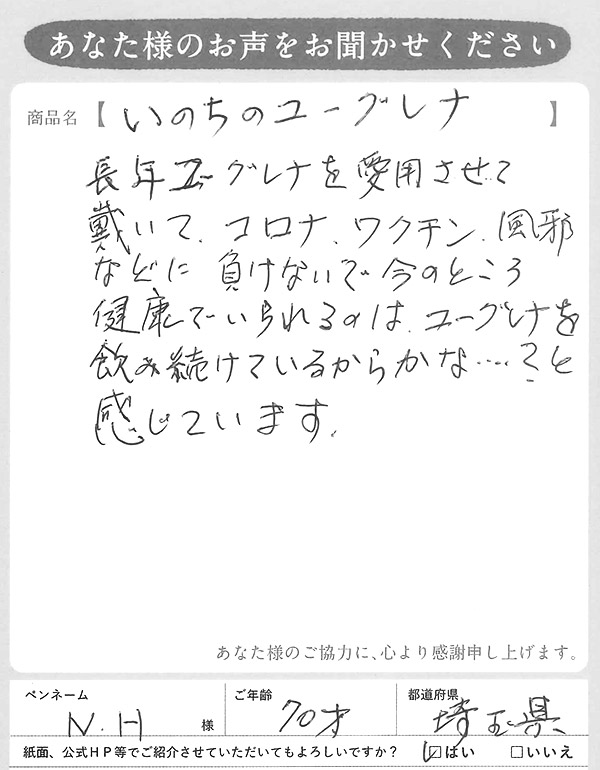 あなた様のお声をお聞かせください
商品名【いのちのユーグレナ】
長年ユーグレナを愛用させて
戴いて、コロナ、ワクチン、風邪
などに負けないで今のところ
健康でいられるのは、ユーグレナを
飲み続けているからかな…?と
感じています。
あなた様のご協力に、心より感謝申し上げます。
ペンネーム ご年齢 都道府県
N.H 様 70才 埼玉県
紙面、公式HP等でご紹介させていただいてもよろしいですか? ☑はい □いいえ